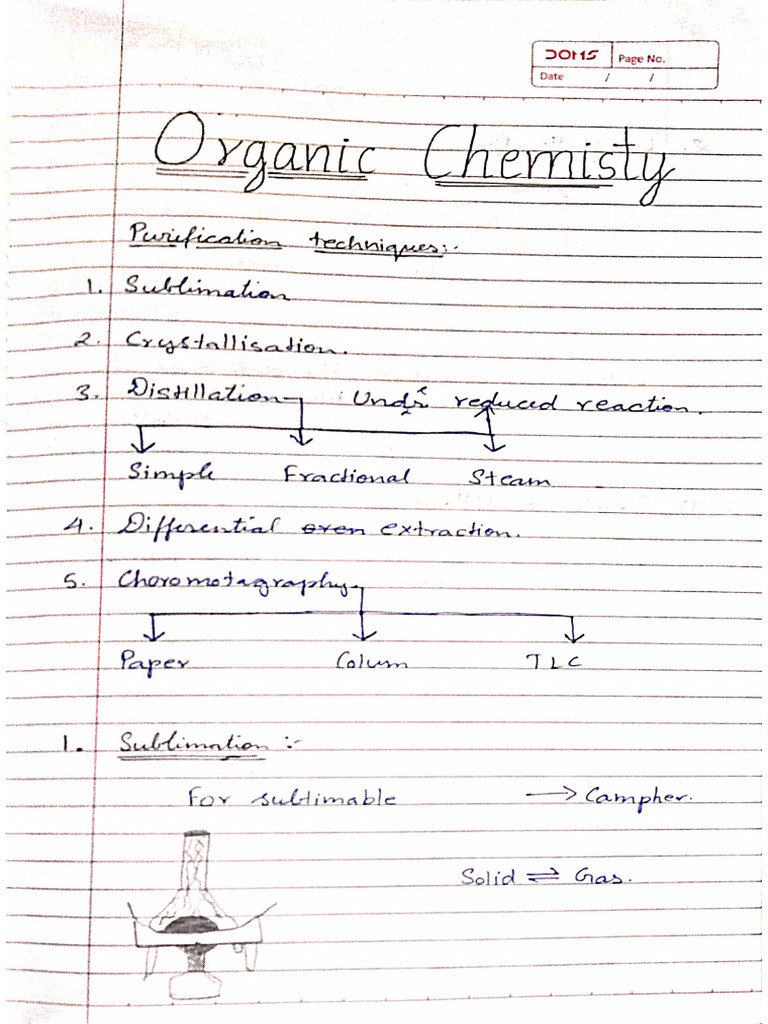 DOMS Page No.
Date / /
Organic Chemisty
Purification techniques:-
1. Sublimation
2. Crystallisation.
3. Distillation Under reduced reaction.
Simple Fractional Steam
4. Differential oven extraction.
5. Choromotagraphy
Paper Colum TLC
1. Sublimation :-
For sublimable → Campher.
Solid ⇌ Gas.